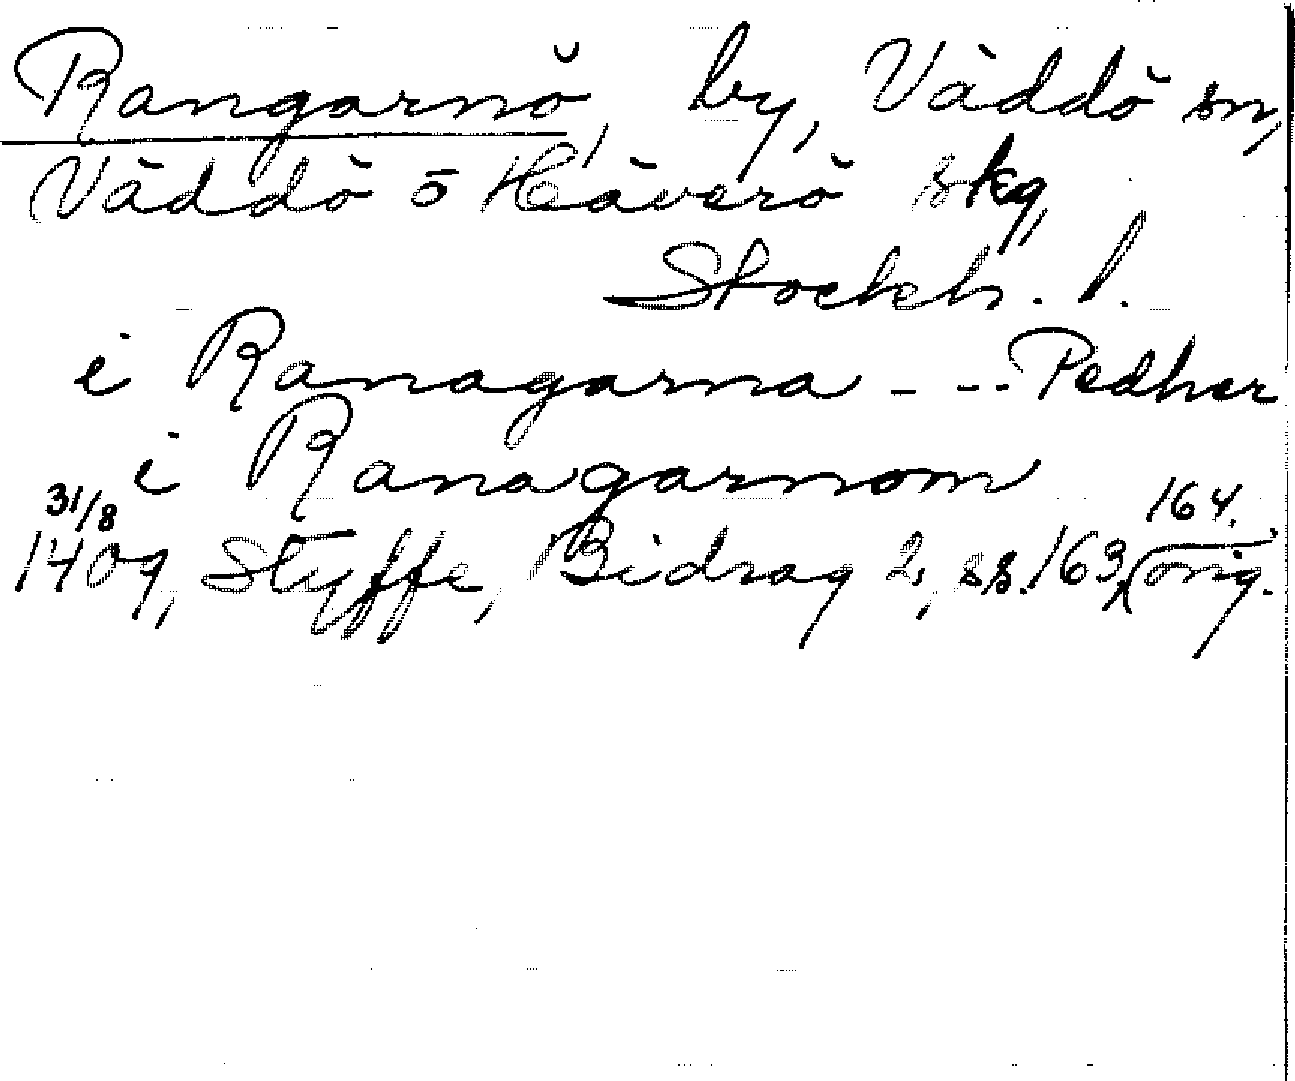 Rangarnö, by, Väddö sn,
Väddö o Häverö skg,
Stockh. l.
i Ranagarna - - - Pedher
i Ranagarnom
31/8 1409, Styffe, Bidrag 2, ss. 163, 164. orig.